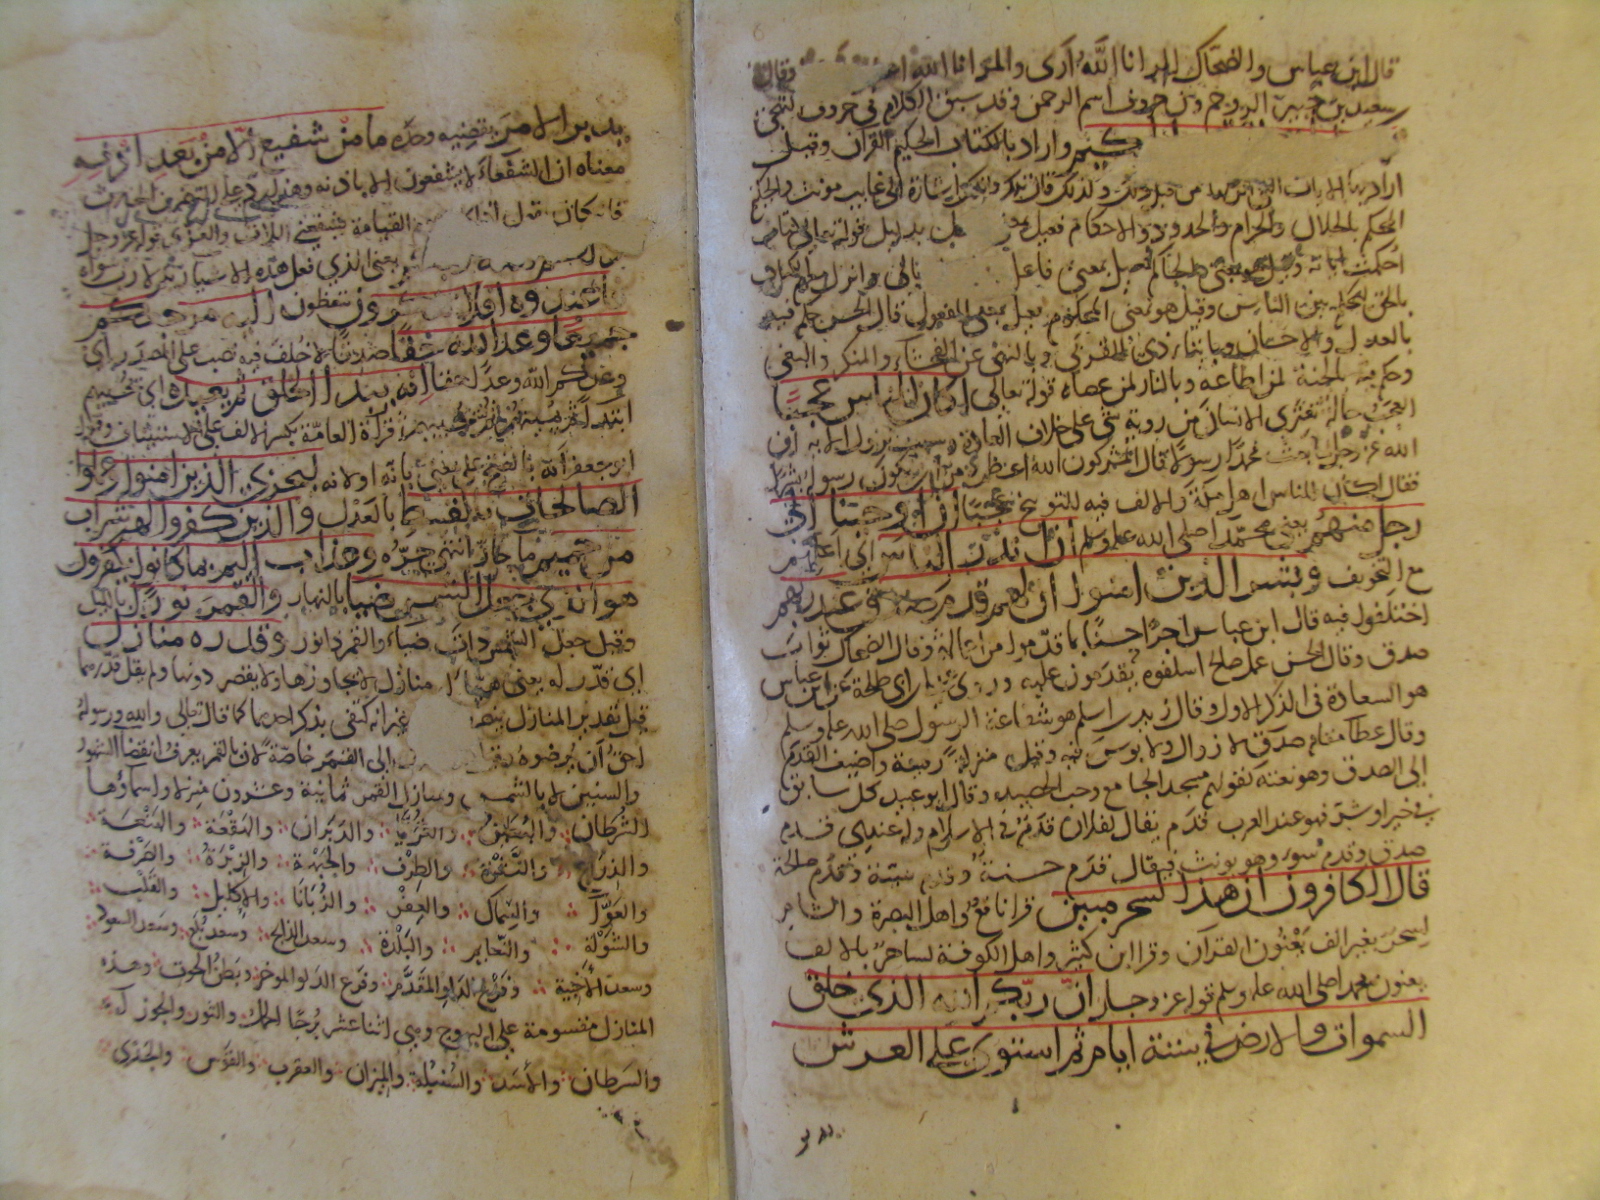 قال ابن عباس والضحاك الر انا الله ارى والمر انا الله وقال
سعيد بن جبير الر وحم ون حروف اسم الرحمن وقد سبق الكلام في حروف التهجي
واراد بالكتاب الحكيم القران وقيل
اراد بها الايات التي من قبل ولذلك قال تلك وتلك اشارة الى غايب مونث والحكيم
المحكم بالحلال والحرام والحدود والاحكام فعيل بدليل قوله تعالى كتاب
احكمت اياته وقيل هو بمعنى الحاكم فعيل بمعنى فاعل وانزل معهم الكتاب
بالحق ليحكم بين الناس وقيل هو بمعنى المحكوم فعيل بمعنى المفعول قال الحسن حكم فيه
بالعدل والاحسان وبايتاء ذي القربى وبالنهي عن الفحشاء والمنكر والبغي
وحكم فيه بالجنة لمن اطاعه وبالنار لمن عصاه قوله تعالى اكان للناس عجبا
العجب حالة تعتري الانسان من روية شي على خلاف العادة وسبب نزول الاية ان
الله عز وجل لما بعث محمدا رسولا قال المشركون الله اعظم من ان يكون رسوله بشرا
فقال اكان للناس اهل مكة والالف فيه للتوبيخ عجبا ان اوحينا الى
رجل منهم يعني محمدا صلى الله عليه وسلم ان انذر الناس اي اعلمهم
مع التخويف وبشر الذين امنوا ان لهم قدم صدق عند ربهم
اختلفوا فيه قال ابن عباس اجرا حسنا بما قدموا من اعمالهم وقال الضحاك ثواب
صدق وقال الحسن عمل صالح اسلفوه يقدمون عليه وروى علي بن ابي طلحة عن ابن عباس
هو السعادة في الذكر الاول وقال زيد بن اسلم هو شفاعة الرسول صلى الله عليه وسلم
وقال عطا مقام صدق لا زوال ولا بوس فيه وقيل منزلة رفيعة واضيف القدم
الى الصدق وهو نعته كقولهم مسجد الجامع وحب الحصيد وقال ابو عبيد كل سابق
في خير او شر فهو عند العرب قدم يقال لفلان قدم في الاسلام وله عندي قدم
صدق وقدم سوء وهو يونث فيقال قدم حسنة وقدم سيئة وقدم صالحة
قال الكافرون ان هذا لسحر مبين قرا نافع واهل البصرة والشام
لسحر بغير الف يعنون القران وقرا ابن كثير واهل الكوفة لساحر بالالف
يعنون محمدا صلى الله عليه وسلم قوله عز وجل ان ربكم الله الذي خلق
السموات والارض في ستة ايام ثم استوى على العرش
يدبر الامر يقضيه وحده ما من شفيع الا من بعد اذنه
معناه ان الشفعاء لا يشفعون الا باذنه وهذا رد على النضر بن الحارث
فانه كان يقول اذا كان القيامة يشفعني اللات والعزى قوله عز وجل
يعني الذي فعل هذه الاشياء ربكم لا رب سواه
فاعبدوه افلا تذكرون تتعظون اليه مرجعكم
جميعا وعد الله حقا صدقا لا خلف فيه نصب على المصدر اي
وعدكم الله وعدا حقا انه يبدا الخلق ثم يعيده اي يحييهم
ابتدا ثم يميتهم ثم يحييهم قراة العامة بكسر الالف على الاستيناف وقرا
ابو جعفر انه بالفتح على معنى بانه او لانه ليجزي الذين امنوا وعملوا
الصالحات بالقسط بالعدل والذين كفروا لهم شراب
من حميم ماء حار انتهى حره وعذاب اليم بما كانوا يكفرون
هو الذي جعل الشمس ضيا بالنهار والقمر نورا بالليل
وقيل جعل الشمس ذات ضياء والقمر ذا نور وقدره منازل
اي قدر له يعني هيا له منازل لا يجاوزها ولا يقصر دونها ولم يقل قدرهما
قيل تقدير المنازل غير انه اكتفى بذكر احدهما كما قال تعالى والله ورسوله
احق ان يرضوه وقيل الى القمر خاصة لان بالقمر يعرف انقضا الشهور
والسنين لا بالشمس ومنازل القمر ثمانية وعشرون منزلا واسماؤها
الشرطان والبطين والثريا والدبران والهقعة والهنعة
والذراع والنثرة والطرف والجبهة والزبرة والصرفة
والعوا والسماك والغفر والزبانا والاكليل والقلب
والشولة والنعايم والبلدة وسعد الذابح وسعد بلع وسعد السعود
وسعد الاخبية وفرع الدلو المقدم وفرع الدلو الموخر وبطن الحوت وهذه
المنازل مقسومة على البروج وهي اثنا عشر برجا الحمل والثور والجوزا
والسرطان والاسد والسنبلة والميزان والعقرب والقوس والجدي